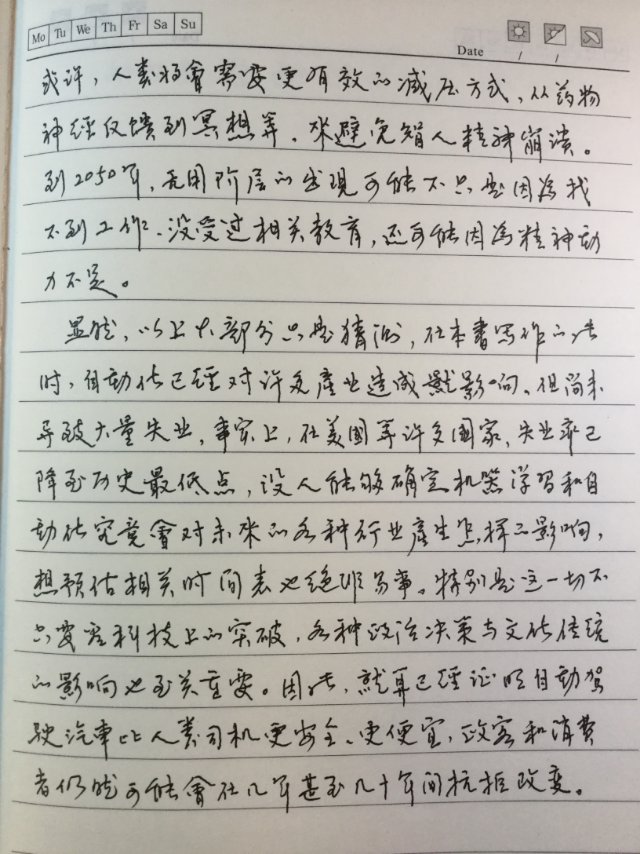 Mo Tu We Th Fr Sa Su
Date / /
或许，人类将會需要更有效的减压方式，从药物
神经反馈到冥想等，来避免智人精神崩溃。
到2050年，无用阶层的出现可能不只是因為找
不到工作、没受过相关教育，还可能因為精神动
力不足。
显然，以上大部分只是猜测，在本書写作的此
时，自动化已經对许多產业造成影响，但尚未
导致大量失业，事实上，在美國等许多国家，失业率已
降至历史最低点，没人能够确定机器学习和自
动化究竟會对未来的各种行业產生怎样的影响，
想预估相关时间表也绝非易事。特别是这一切不
只要看科技上的突破，各种政治决策与文化传统
的影响也至关重要。因此，就算已經证明自动驾
驶汽車比人类司机更安全、更便宜，政客和消费
者仍然可能會在几年甚至几十年间抗拒改变。